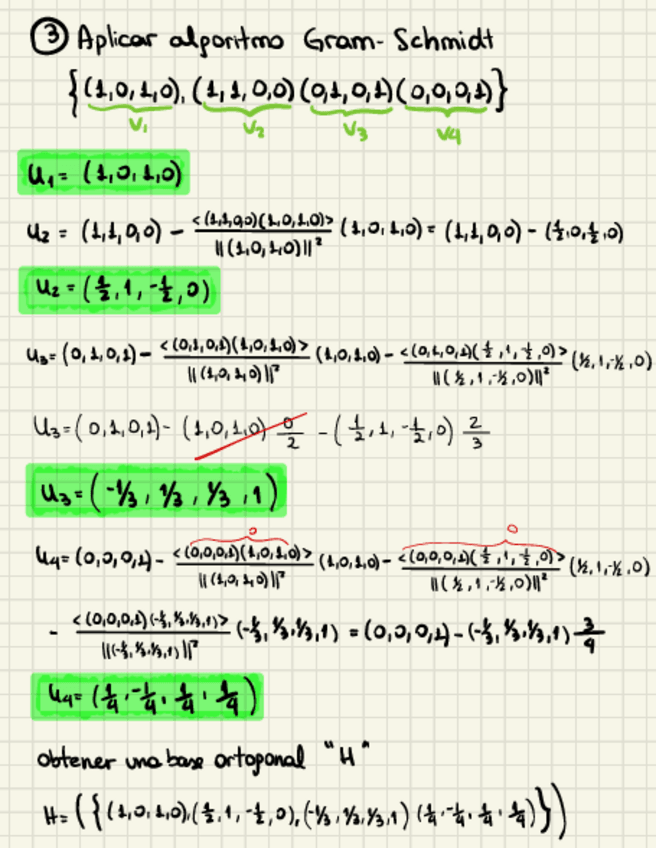 ③ Aplicar algoritmo Gram-Schmidt
{(1,0,1,0), (1,1,0,0) (0,1,0,1) (0,0,0,1)}
V₁ V₂ V₃ V4
U₁ = (1,0,1,0)
U₂ = (1,1,0,0) - <(1,1,0,0)(1,0,1,0)> / ||(1,0,1,0)||² (1,0,1,0) = (1,1,0,0) - (1/2,0,1/2,0)
U₂ = (1/2, 1, -1/2, 0)
U₃ = (0,1,0,1) - <(0,1,0,1)(1,0,1,0)> / ||(1,0,1,0)||² (1,0,1,0) - <(0,1,0,1)(1/2,1,-1/2,0)> / ||(1/2,1,-1/2,0)||² (1/2,1,-1/2,0)
U₃ = (0,1,0,1) - (1,0,1,0) 0/2 - (1/2, 1, -1/2, 0) 2/3
U₃ = (-1/3, 1/3, 1/3, 1)
0 0
U4 = (0,0,0,1) - <(0,0,0,1)(1,0,1,0)> / ||(1,0,1,0)||² (1,0,1,0) - <(0,0,0,1)(1/2,1,-1/2,0)> / ||(1/2,1,-1/2,0)||² (1/2,1,-1/2,0)
- <(0,0,0,1)(-1/3,1/3,1/3,1)> / ||(-1/3,1/3,1/3,1)||² (-1/3,1/3,1/3,1) = (0,0,0,1) - (-1/3,1/3,1/3,1) 3/4
U4 = (1/4, -1/4, 1/4, 1/4)
obtener una base ortogonal "H"
H = ({(1,0,1,0),(1/2,1,-1/2,0),(-1/3,1/3,1/3,1) (1/4,-1/4,1/4,1/4)})